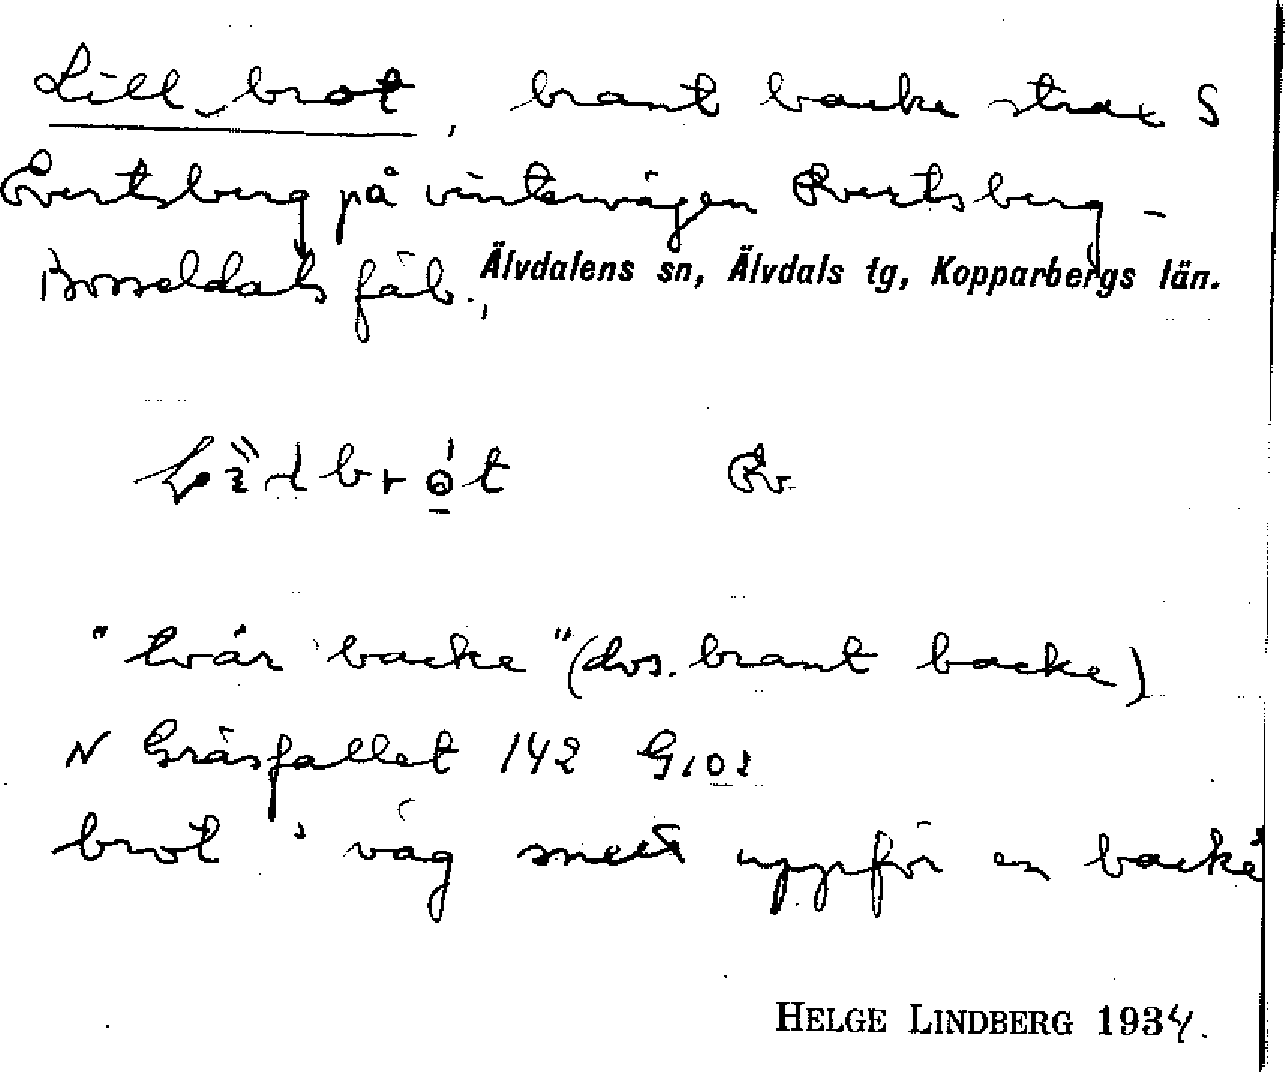 Lill_brot, brant backe strax S
Evertsberg på vintervägen Evertsberg -
fäb., Älvdalens sn, Älvdals tg, Kopparbergs län.
Ev
"tvär backe" (dvs. brant backe)
N Gräsfallet 142
brot 'väg snett uppför en backe'
HELGE LINDBERG 1934.